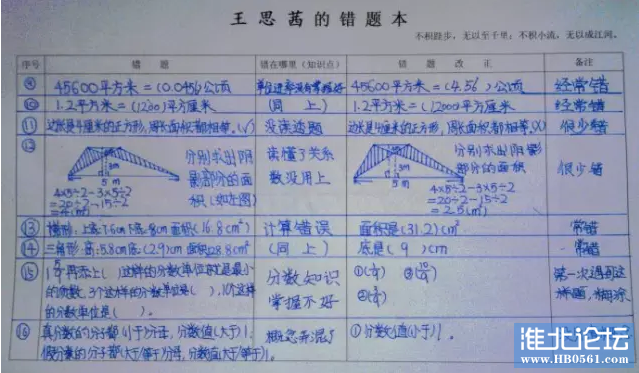 王思茜的错题本
不积跬步，无以至千里；不积小流，无以成江河。
序号 错题 错在哪里（知识点） 错题改正 备注
⑨ 45600平方米=(0.0456)公顷 单位进率没有掌握好 45600平方米=(4.56)公顷 经常错
⑩ 1.2平方米=(1200)平方厘米 (同上) 1.2平方米=(12000)平方厘米 经常错
⑪ 边长是4厘米的正方形，周长面积都相等。(√) 没读透题 边长是4厘米的正方形，周长面积都相等。(×) 很少错
⑫ 分别求出阴影部分的面积 读懂了关系数没用上 分别求出阴影部分的面积 很少错
3m
5m
4×5÷2-3×5÷2
=20÷2-15÷2
4×5÷2-3×5÷2
=20÷2-15÷2
=2.5(m²)
⑬ 梯形：上底:7.6cm 高:8cm 面积(16.8cm²) 计算错误 面积是(31.2)cm² 常错
⑭ 三角形：高:5.8cm 底(2.9)cm 面积28.8cm² (同上) 底是(9)cm 常错
⑮ 再添上( )这样的分数单位就是最小的质数，3个这样的分数单位是( )，10个这样的分数单位是( )。 分数知识掌握不好 第一次遇到这
⑯ 真分数的分子都(小于)分母，分数值(大于)1; 概念弄混 ①分数值(小于)1。
假分数的分子都(大于/等于)分母，分数值(大于/等于)1。
淮北论坛
www.HB0561.com